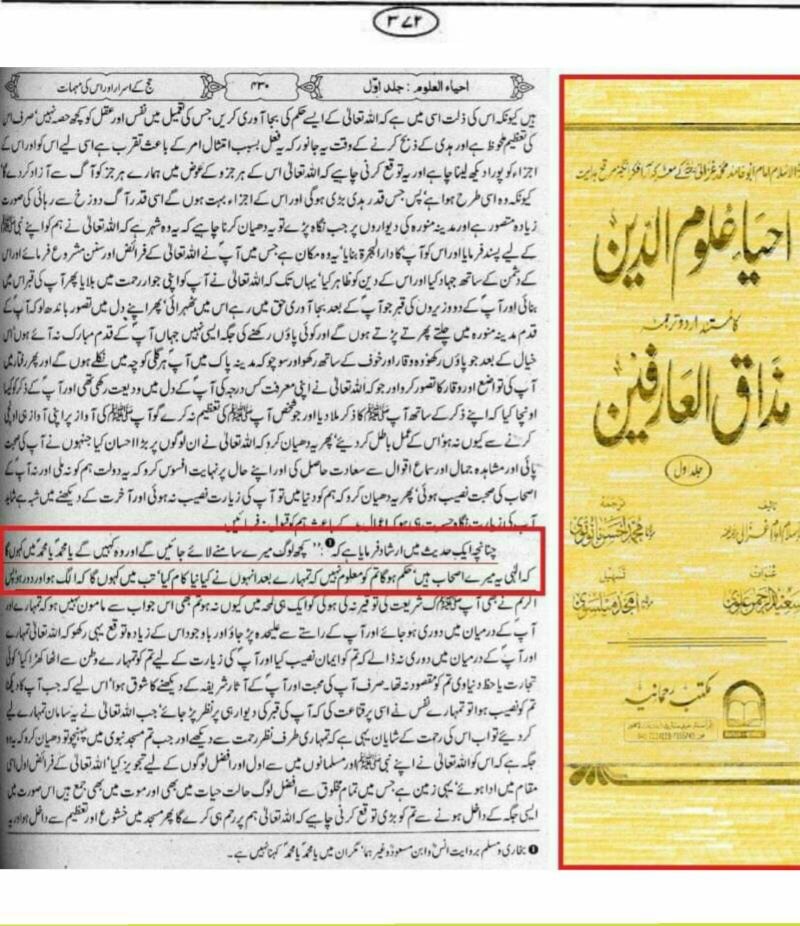 ۳۷۲
احیاء العلوم : جلد اوّل
۴۳۰
حج کے اسرار اور اس کی مہمات
ہیں کیونکہ اس کی ذلت اسی میں ہے کہ اللہ تعالیٰ کے ایسے حکم کی بجا آوری کریں جس کی تعمیل میں نفس اور عقل کو کچھ حصہ نہیں' صرف اس
کی تعظیم ملحوظ ہے اور ہدی کے ذبح کرنے کے وقت یہ جانور کہ یہ فعل بسبب امتثال امر کے باعث تقرب ہے اسی لیے اس کو اور اس کے
اجزاء کو پورا دیکھ لینا چاہیے اور یہ توقع کرنی چاہیے کہ اللہ تعالیٰ اس کے ہر جزو کے عوض میں ہمارے ہر جزو کو آگ سے آزاد کر دے گا
کیونکہ وعدہ اسی طرح ہوا ہے' پس جس قدر ہدی بڑی ہوگی اور اس کے اجزاء بہت ہوں گے اسی قدر آگ دوزخ سے رہائی کی صورت
زیادہ متصور ہے اور مدینہ منورہ کی دیواروں پر جب نگاہ پڑے تو یہ دھیان کرنا چاہیے کہ یہ وہ شہر ہے کہ اللہ تعالیٰ نے ہم کو اپنے نبی ﷺ
کے لیے پسند فرمایا اور اس کو آپؐ کا دار الہجرۃ بنایا' یہ وہ مکان ہے جس میں آپؐ نے اللہ تعالیٰ کے فرائض اور سنن مشروع فرمائے اور اس
کے دشمن کے ساتھ جہاد کیا اور اس کے دین کو ظاہر کیا' یہاں تک کہ اللہ تعالیٰ نے آپؐ کو اپنی جوار رحمت میں بلایا پھر آپؐ کی قبر اس میں
بنائی اور آپؐ کے دو وزیروں کی قبر جو آپؐ کے بعد بجا آوری حق میں رہے اس میں ٹھہرائی' پھر اپنے دل میں تصور باندھ لو کہ آپؐ کے
قدم مدینہ منورہ میں چلتے پھرتے پڑتے ہوں گے اور کوئی پاؤں رکھنے کی جگہ ایسی نہیں جہاں آپؐ کے قدم مبارک نہ آئے ہوں اس
خیال کے بعد جو پاؤں رکھو' وہ وقار اور خوف کے ساتھ رکھو اور سوچو کہ مدینہ پاک میں آپؐ ہر گلی کوچہ میں نکلے ہوں گے اور پھر رفتار میں
آپؐ کی تواضع اور وقار کا تصور کرو اور جو کہ اللہ تعالیٰ نے اپنی معرفت کس درجہ کی آپؐ کے دل میں ودیعت رکھی تھی اور آپؐ کے ذکر کو کیا
اونچا کیا کہ اپنے ذکر کے ساتھ آپ ﷺ کا ذکر ملا دیا اور جو شخص آپ ﷺ کی تعظیم نہ کرے گو آپ ﷺ کی آواز پر اپنی آواز ہی اونچی
کرنے سے کیوں نہ ہو' اس کے عمل باطل کر دیئے' پھر یہ دھیان کرو کہ اللہ تعالیٰ نے ان لوگوں پر بڑا احسان کیا جنہوں نے آپؐ کی صحبت
پائی اور مشاہدہ جمال اور سماع اقوال سے سعادت حاصل کی اور اپنے حال پر نہایت افسوس کرو کہ یہ دولت ہم کو نہ ملی اور نہ آپؐ کے
اصحاب کی صحبت نصیب ہوئی' پھر یہ دھیان کرو کہ ہم کو دنیا میں تو آپؐ کی زیارت نصیب نہ ہوئی اور آخرت کے دیکھنے میں شبہ ہے شاید
آپؐ کی زیارت نگاہ حسرت ہی سے ہو کہ اعمال بد کے باعث ہم کو قبول نہ فرمائیں
چنانچہ ایک حدیث میں ارشاد فرمایا ہے کہ ❶: "کچھ لوگ میرے سامنے لائے جائیں گے اور وہ کہیں گے یا محمدؐ یا محمدؐ میں کہوں گا
کہ الٰہی یہ میرے اصحاب ہیں' حکم ہوگا تم کو معلوم نہیں کہ تمہارے بعد انہوں نے کیا نیا کام کیا' تب میں کہوں گا کہ الگ ہو اور دور ہو" پس
اگر تم نے بھی آپ ﷺ کی شریعت کی توقیر نہ کی ہوگی گو ایک ہی لمحہ میں کیوں نہ ہو تم بھی اس جواب سے مامون نہیں ہو کہ تمہارے اور
آپؐ کے درمیان میں دوری ہو جائے اور آپؐ کے راستے سے علیحدہ پڑ جاؤ اور باوجود اس کے زیادہ توقع یہی رکھو کہ اللہ تعالیٰ تمہارے
اور آپؐ کے درمیان میں دوری نہ ڈالے کہ تم کو ایمان نصیب کیا اور آپؐ کی زیارت کے لیے تم کو تمہارے وطن سے اٹھا کھڑا کیا' کوئی
تجارت یا حظ دنیاوی تم کو مقصود نہ تھا۔ صرف آپؐ کی محبت اور آپؐ کے آثار شریفہ کے دیکھنے کا شوق ہوا' اس لیے کہ جب آپؐ کا دیکھنا
تم کو نصیب ہوا تو تمہارے نفس نے اسی پر قناعت کی کہ آپؐ کی قبر کی دیوار ہی پر نظر پڑ جائے' جب اللہ تعالیٰ نے یہ سامان تمہارے لیے
کر دیئے تو اب اس کی رحمت کے شایان یہی ہے کہ تمہاری طرف نظر رحمت سے دیکھے اور جب تم مسجد نبوی میں پہنچو تو دھیان کرو کہ یہ وہ
جگہ ہے کہ اس کو اللہ تعالیٰ نے اپنے نبی ﷺ اور مسلمانوں میں سے اول اور افضل لوگوں کے لیے تجویز کیا' اللہ تعالیٰ کے فرائض اول اسی
مقام میں ادا ہوئے' یہی زمین ہے جس میں تمام مخلوق سے افضل لوگ حالت حیات میں بھی اور موت میں بھی جمع ہیں اس صورت میں
ایسی جگہ کے داخل ہونے سے تم کو بڑی توقع کرنی چاہیے کہ اللہ تعالیٰ ہم پر رحم ہی کرے گا پھر مسجد میں خشوع اور تعظیم سے داخل ہو اور یہ
❶ بخاری و مسلم بروایت انس و ابن مسعود وغیرہما' مگر ان میں یا محمدؐ یا محمدؐ کہنا نہیں ہے۔
احیاء علوم الدین
کا مستند اردو ترجمہ
مذاق العارفین
جلد اول
ترجمہ
مولانا محمد احسن نانوتوی
تسہیل
عنوانات
مکتبہ رحمانیہ